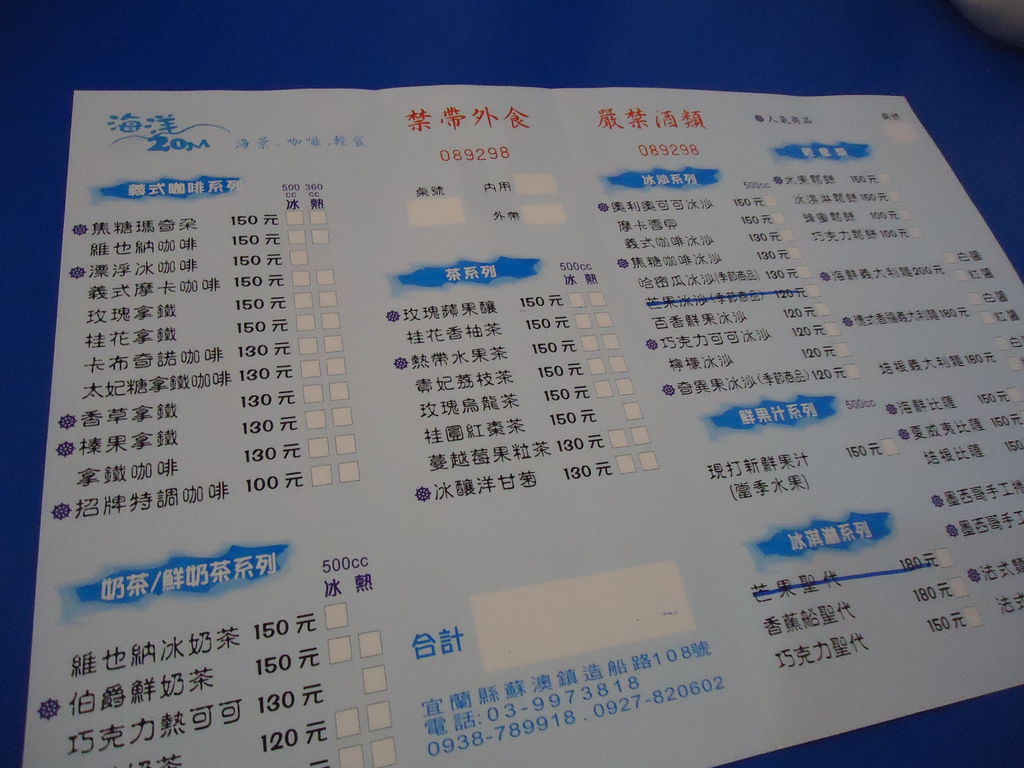 海洋 20M 海景.咖啡.輕食
禁帶外食
089298
嚴禁酒類
089298
人氣商品
桌號
桌號 內用
外帶
義式咖啡系列 500cc 冰 360cc 熱
焦糖瑪奇朵 150元
維也納咖啡 150元
漂浮冰咖啡 150元
義式摩卡咖啡 150元
玫瑰拿鐵 150元
桂花拿鐵 150元
卡布奇諾咖啡 130元
太妃糖拿鐵咖啡 130元
香草拿鐵 130元
榛果拿鐵 130元
拿鐵咖啡 130元
招牌特調咖啡 100元
奶茶/鮮奶茶系列 500cc 冰 熱
維也納冰奶茶 150元
伯爵鮮奶茶 150元
巧克力熱可可 130元
奶茶 120元
茶系列 500cc 冰 熱
玫瑰蘋果釀 150元
桂花香柚茶 150元
熱帶水果茶 150元
貴妃荔枝茶 150元
玫瑰烏龍茶 150元
桂圓紅棗茶 150元
蔓越莓果粒茶 130元
冰釀洋甘菊 130元
合計
宜蘭縣蘇澳鎮造船路108號
電話:03-9973818
0938-789918.0927-820602
冰沙系列 500cc
奧利奧可可冰沙 150元
摩卡雪帝 150元
義式咖啡冰沙 130元
焦糖咖啡冰沙 130元
哈密瓜冰沙(季節商品) 130元
芒果冰沙(季節商品) 120元
百香鮮果冰沙 120元
巧克力可可冰沙 120元
檸檬冰沙 120元
奇異果冰沙(季節商品) 120元
鮮果汁系列 500cc
現打新鮮果汁 150元
(當季水果)
冰淇淋系列
芒果聖代 180元
香蕉船聖代 180元
巧克力聖代 150元
輕食類
水果鬆餅 150元
冰淇淋鬆餅 150元
蜂蜜鬆餅 100元
巧克力鬆餅 100元
海鮮義大利麵 200元 白醬
紅醬
義大利麵 180元 白醬
紅醬
培根義大利麵 180元 白
紅
海鮮比薩 150元
夏威夷比薩 150元
培根比薩 150
墨西哥手工捲
墨西哥手工
法式
法式